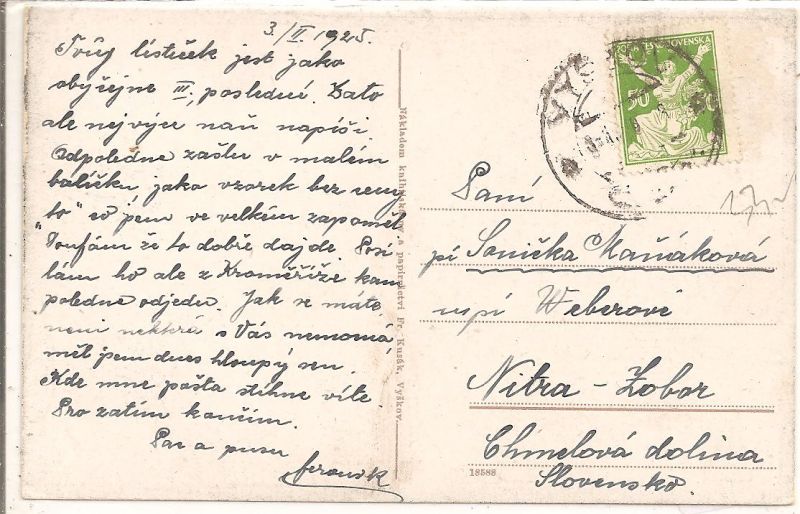 3./II. 1925.
Tvůj lísteček jest jako
obyčejne III, poslední. Zato
ale nejvíce naň napíši.
Odpoledne zašlu v malém
balíčku jako vzorek bez ceny
"to" co jsem ve velkém zapoměl
Doufám že to dobře dojde. Posí
lám ho ale z Kroměříže kam
poledne odjedu. Jak se máte
neni nekterá s Vás nemocná
měl jsem dnes hloupý sen.
Kde mne pošta stihne víte.
Pro zatím končím.
Pac a pusu
Nákladem knihtiskárny a papírnictví Fr. Kusák, Vyškov.
ČESKOSLOVENSKA
50
VYŠKOV
Paní
pí Sonička Maňáková
u pí Weberové
Nitra - Zobor
Chmelová dolina
Slovensko.
18588